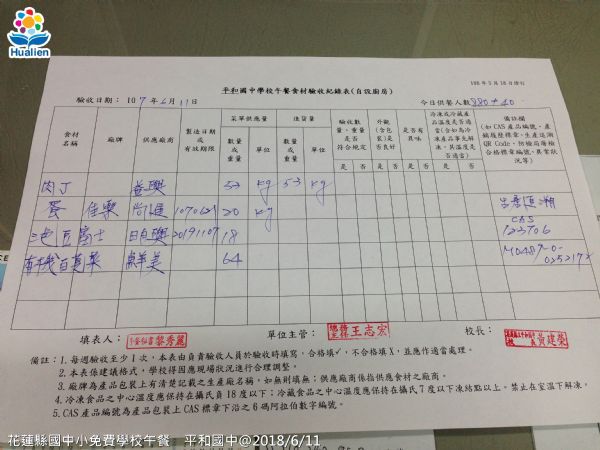 Hualien
108年3月18日修訂
平和國中學校午餐食材驗收紀錄表(自設廚房)
驗收日期：107年6月11日
今日供餐人數：880+60
食材名稱 廠牌 供應廠商 製造日期或有效期限 菜單供應量 進貨量 驗收數量、重量是否符合規定 外觀(含包裝)是否良好 是否有異味 冷凍或冷藏產品溫度是否適當 備註欄
數量或重量 單位 數量或重量 單位 是 否 是 否 是 否 是 否
肉丁 益興 53 kg 53 kg
蛋 佳樂 尚選 1070621 20 kg
三色豆 富士 日良興 20191107 18 CAS 123706
有機 64
填表人： 黎秀麗 單位主管： 王志宏 校長： 黃建榮
備註：1.每週驗收至少1次，本表由負責驗收人員於驗收時填寫，合格填✓，不合格填X，並應作適當處理。
2.本表係建議格式，學校得因應現場狀況進行合理調整。
3.廠牌為產品包裝上有清楚記載之生產廠名稱，如無則填無；供應廠商係指供應食材之廠商。
4.冷凍食品之中心溫度應保持在攝氏負18度以下；冷藏食品之中心溫度應保持在攝氏7度以下凍結點以上。禁止在室溫下解凍。
5.CAS產品編號為產品包裝上CAS標章下沿之6碼阿拉伯數字編號。
花蓮縣國中小免費學校午餐 平和國中@2018/6/11